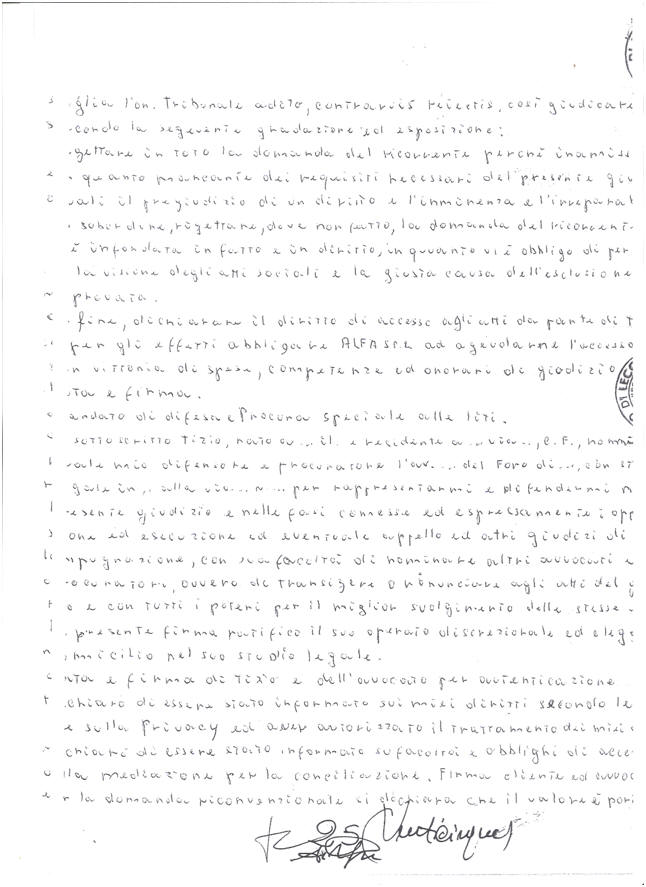 DI
.glia l'on. Tribunale adito, contrariis reiectis, così giudicare
condo la seguente gradazione ed esposizione:
gettare in toto la domanda del ricorrente perché inammiss
quanto mancante dei requisiti necessari del presente giu
vali il pregiudizio di un diritto e l'imminenza e l'irreparabi
. subordine, rigettare, dove non fatto, la domanda del ricorrent
è infondata in fatto e in diritto, in quanto vi è obbligo di per
la visione degli atti sociali e la giusta causa dell'esclusione
provata.
. fine, dichiarare il diritto di accesso agli atti da parte di T
per gli effetti obbligare ALFA s.r.l. ad agevolarne l'accesso
in vittoria di spese, competenze ed onorari di giudizio
ta e firma.
DI LECC
andato di difesa e Procura speciale alle liti.
sottoscritto Tizio, nato a... il.. e residente a... via..., C.F., nomin
vale mio difensore e procuratore l'avv.... del Foro di..., con st
gale in,. alla via... n.... per rappresentarmi e difendermi n
esente giudizio e nelle fasi connesse ed espressamente: opp
one ed esecuzione ed eventuale appello ed altri giudizi di
mpugnazione, con sua facoltà di nominare altri avvocati e
rocuratori, ovvero di transigere o rinunciare agli atti del g
o e con tutti i poteri per il miglior svolgimento delle stesse.
. presente firma ratifico il suo operato discrezionale ed elego
micilio nel suo studio legale.
ata e firma di Tizio e dell'avvocato per autenticazione
chiaro di essere stato informato sui miei diritti secondo le
e sulla Privacy ed aver autorizzato il trattamento dei miei
chiaro di essere stato informato su facoltà e obblighi di acce
lla mediazione per la conciliazione. Firma cliente ed avvoc
er la domanda riconvenzionale si dichiara che il valore è pari
25 Venticinque